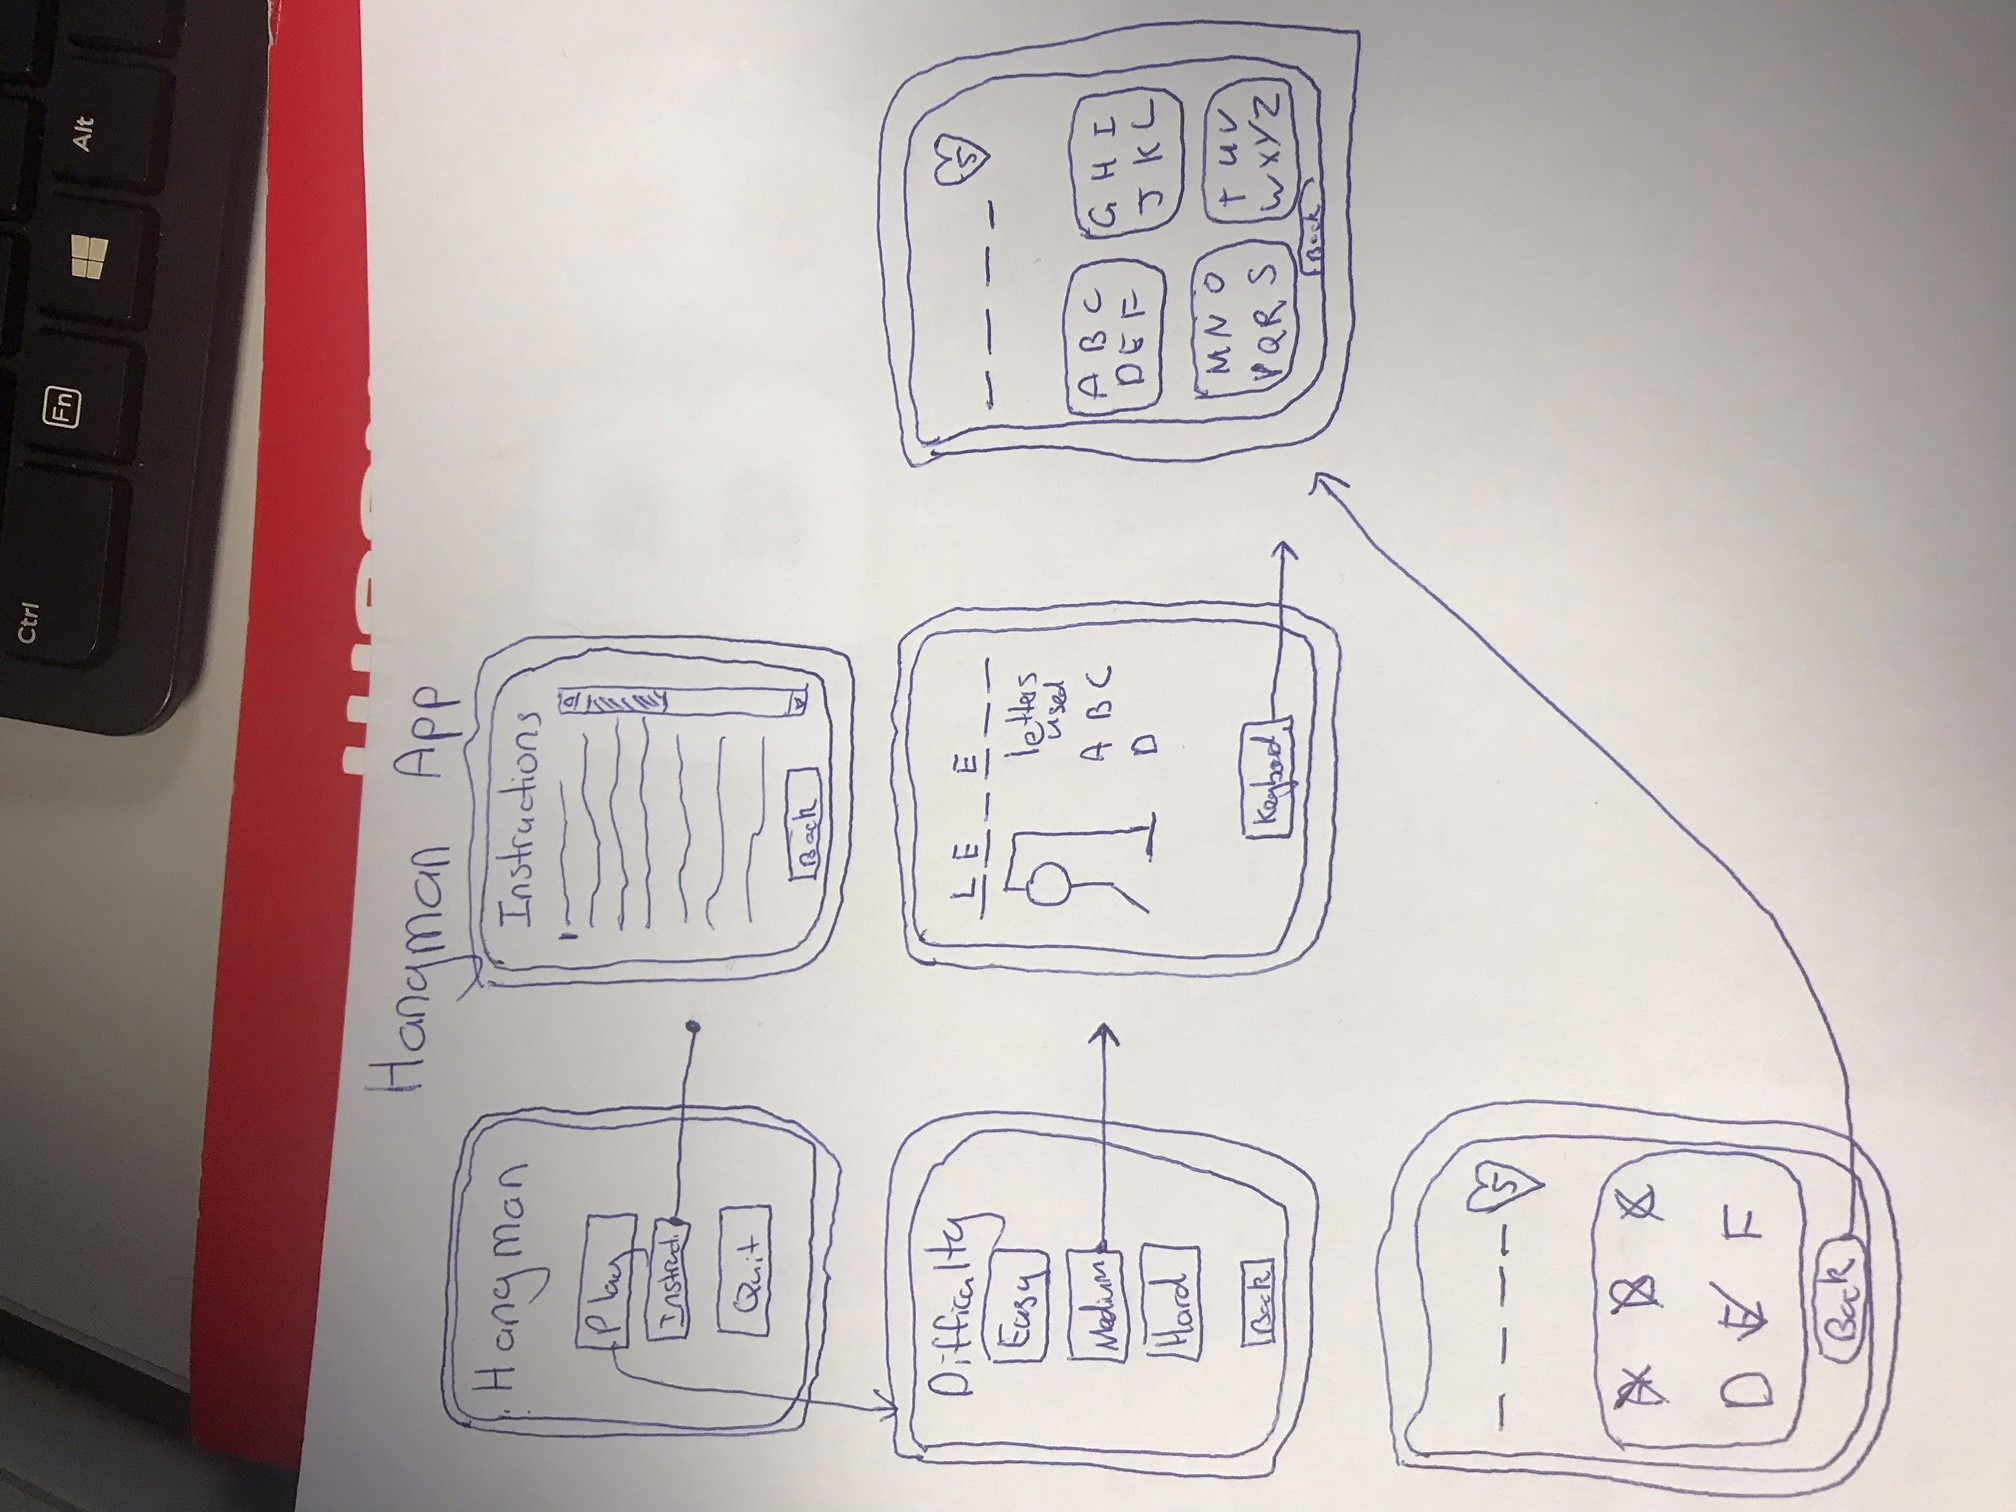 Hangman App
Hangman
Play
Instruct.
Quit
Instructions
Back
Difficulty
Easy
Medium
Hard
Back
L E _ _ E _ _
letters
used
A B C
D
Keyboad
5
A B C
D E F
G H I
J K L
M N O
P Q R S
T U V
W X Y Z
Back
5
A B C
D E F
Back
Ctrl
Fn
Alt